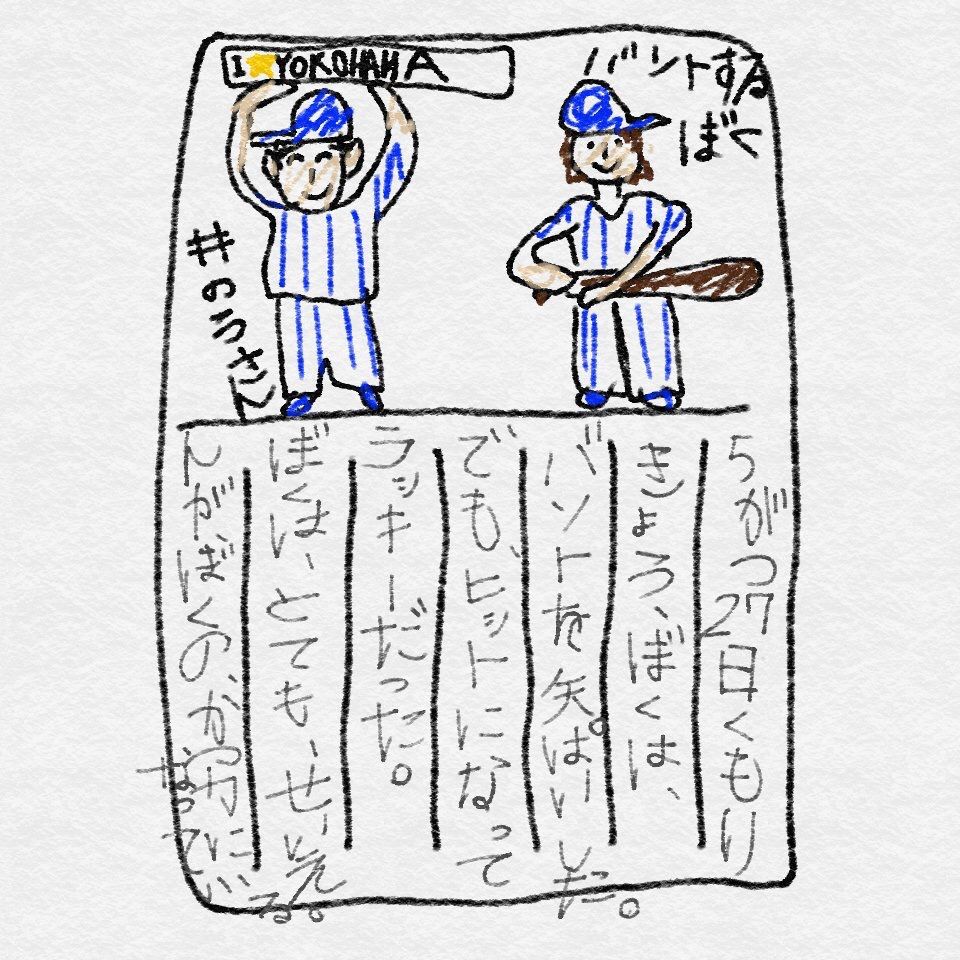 I YOKOHAMA
バントする
ぼく
井のうさん
5がつ27日くもり
きょう、ぼくは、
バントを矢ぱいした。
でも、ヒットになって
ラッキーだった。
ぼくは、とても、せいえ
んがぼくの、力になってい
る。